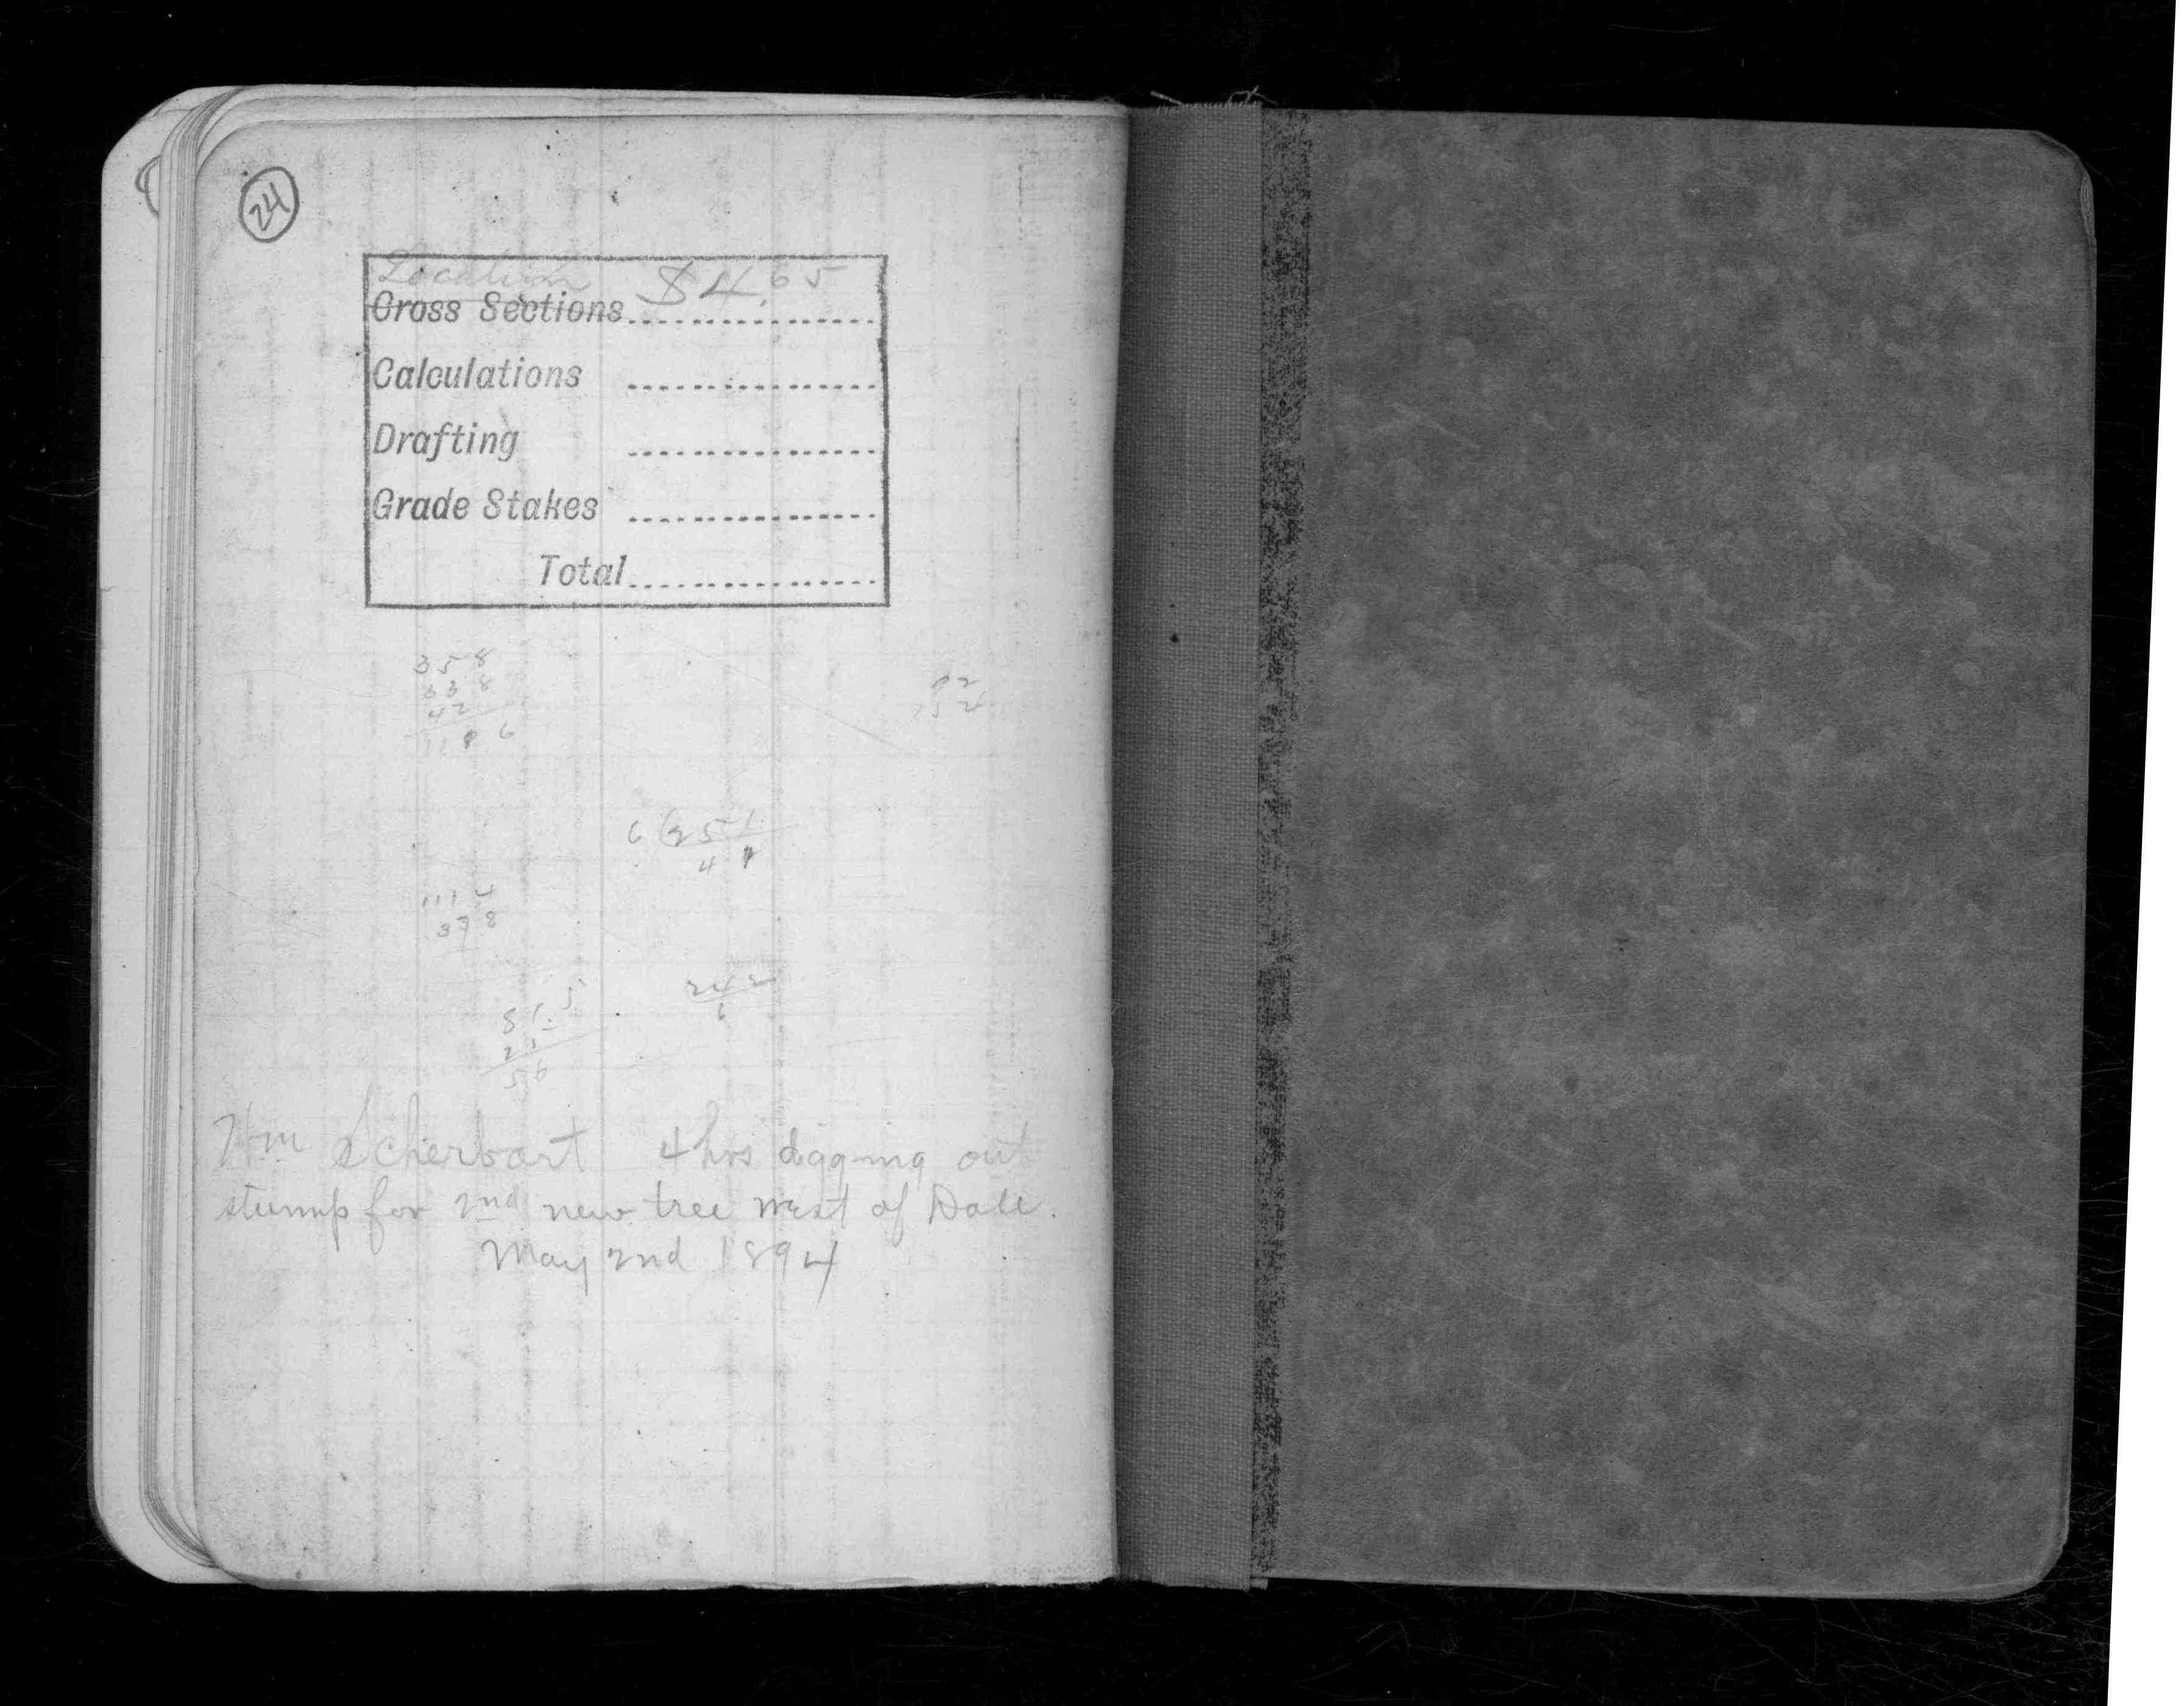 24
Location $4.65
Cross Sections
Calculations
Drafting
Grade Stakes
Total
358
338
42
92
6 251
4
1114
378
81.5
242
6
56
Wm Scherbart 4 hrs digging out
stump for 2nd new tree west of Dale.
May 2nd 1894